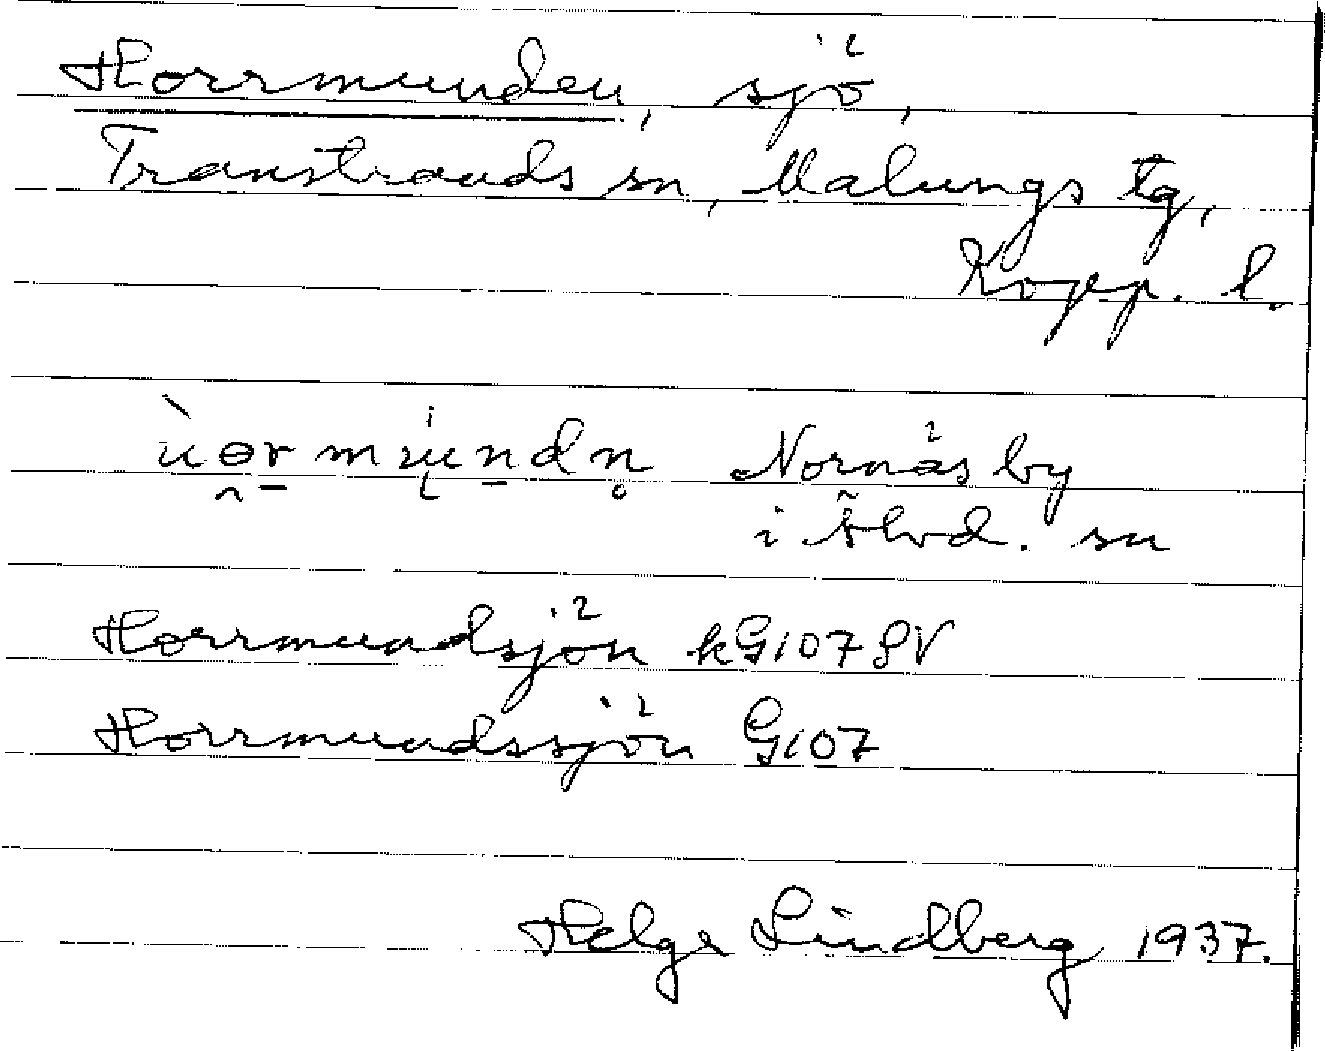 Horrmunden, sjö,
Transtrands sn, Malungs tg,
Kopp. l.
Nornäs by
i Älvd. sn
Horrmundsjön kG107SV
Horrmundssjön G107
Helge Lindberg 1937.